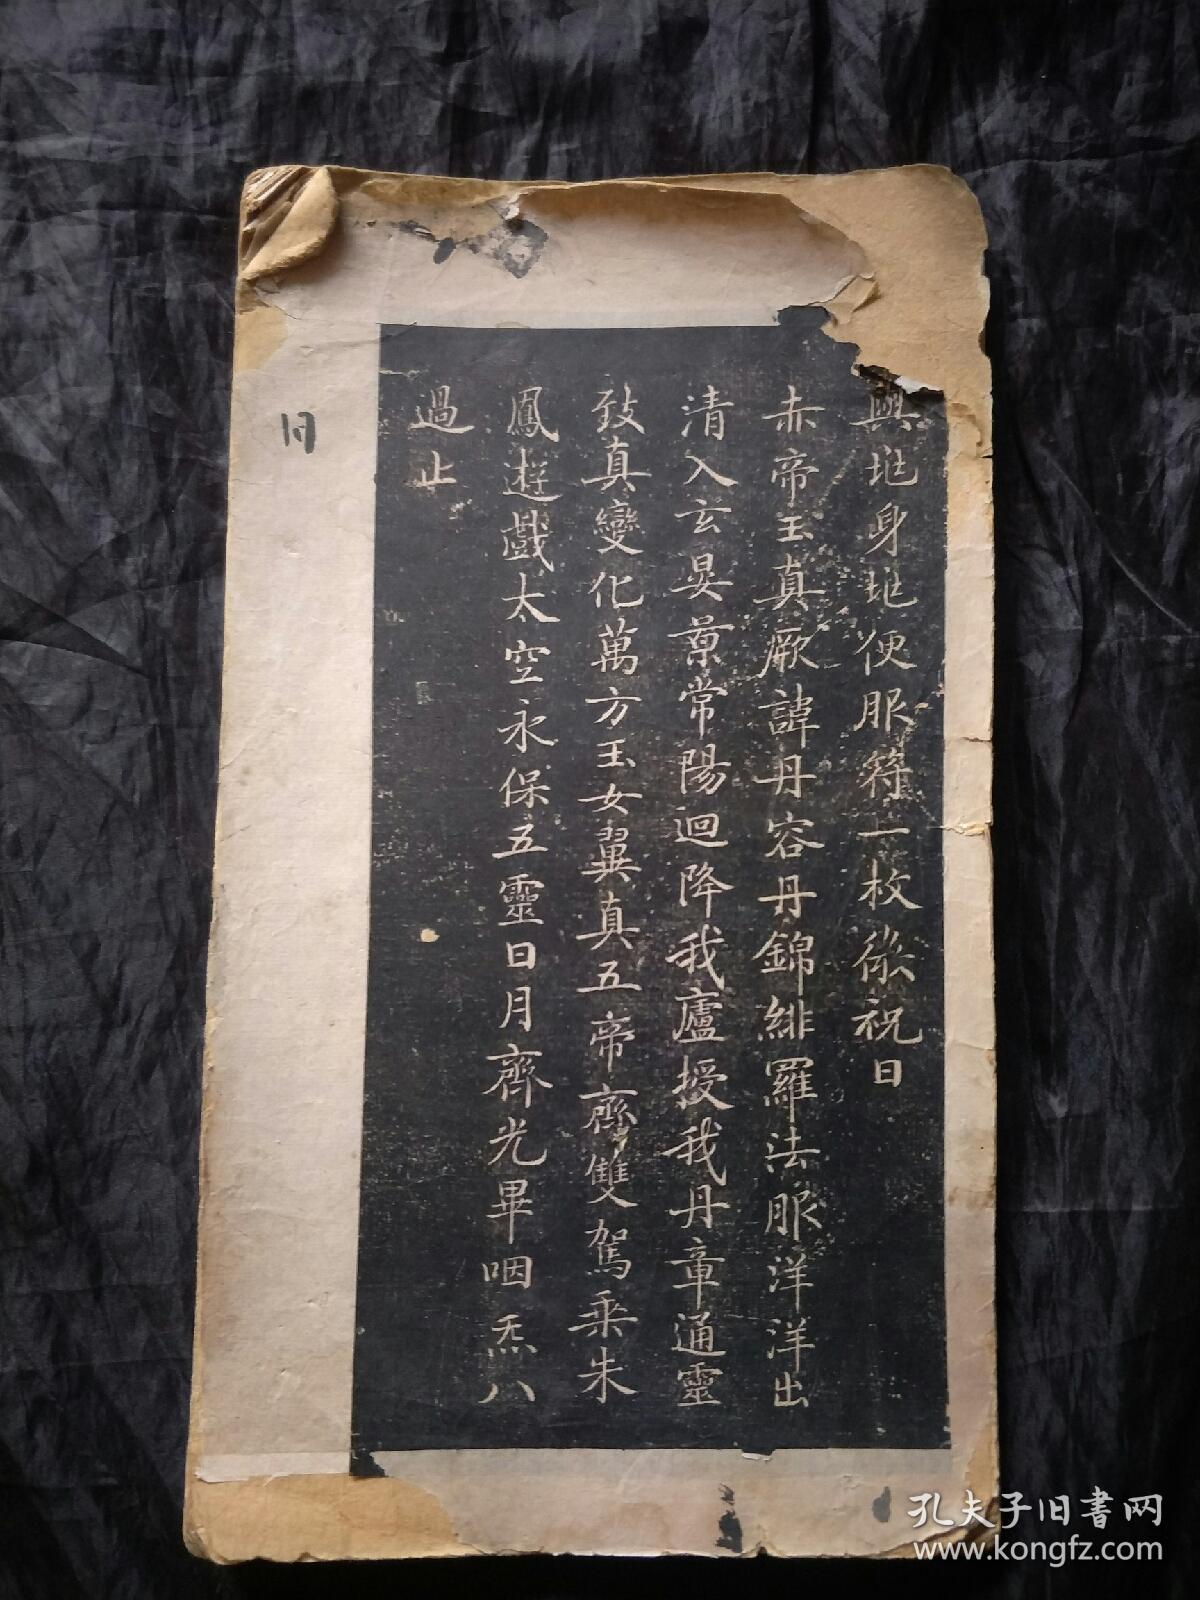 興兆身兆便服符一枚微祝日
赤帝玉真厥諱丹容丹錦緋羅法服洋洋出
清入玄晏景常陽迴降我廬授我丹章通靈
致真變化萬方玉女翼真五帝齊雙駕乘朱
鳳遊戲太空永保五靈日月齊光畢咽炁八
過止
孔夫子旧書网
www.kongfz.com